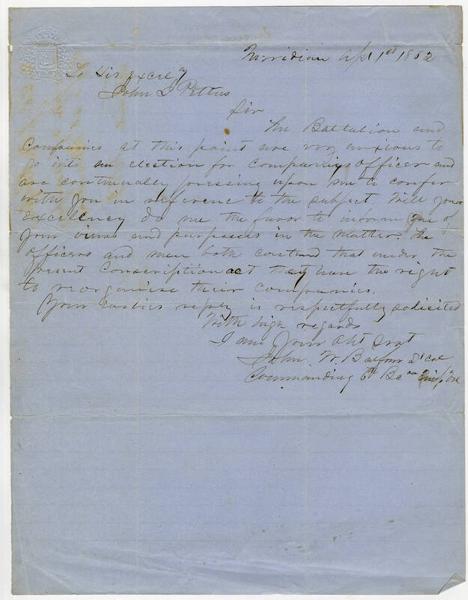 Meridian Apl 1st 1862
To His Excely
John J Pettus
Sir
The Battalion and
Companies at this point are very anxious to
go into an election for Company Officer and
are continually pressing upon me to confer
with you in reference to the subject Will your
Excellency do me the favor to inform me of
your views and purposes in the matter. The
officers and men both contend that under the
present Conscription act they have the right
to reorganise their companies.
Your earliest reply is respectfully solicited
With high regards
I am Your Obt Svt
John W. Balfour Lt Col
Commanding 6th